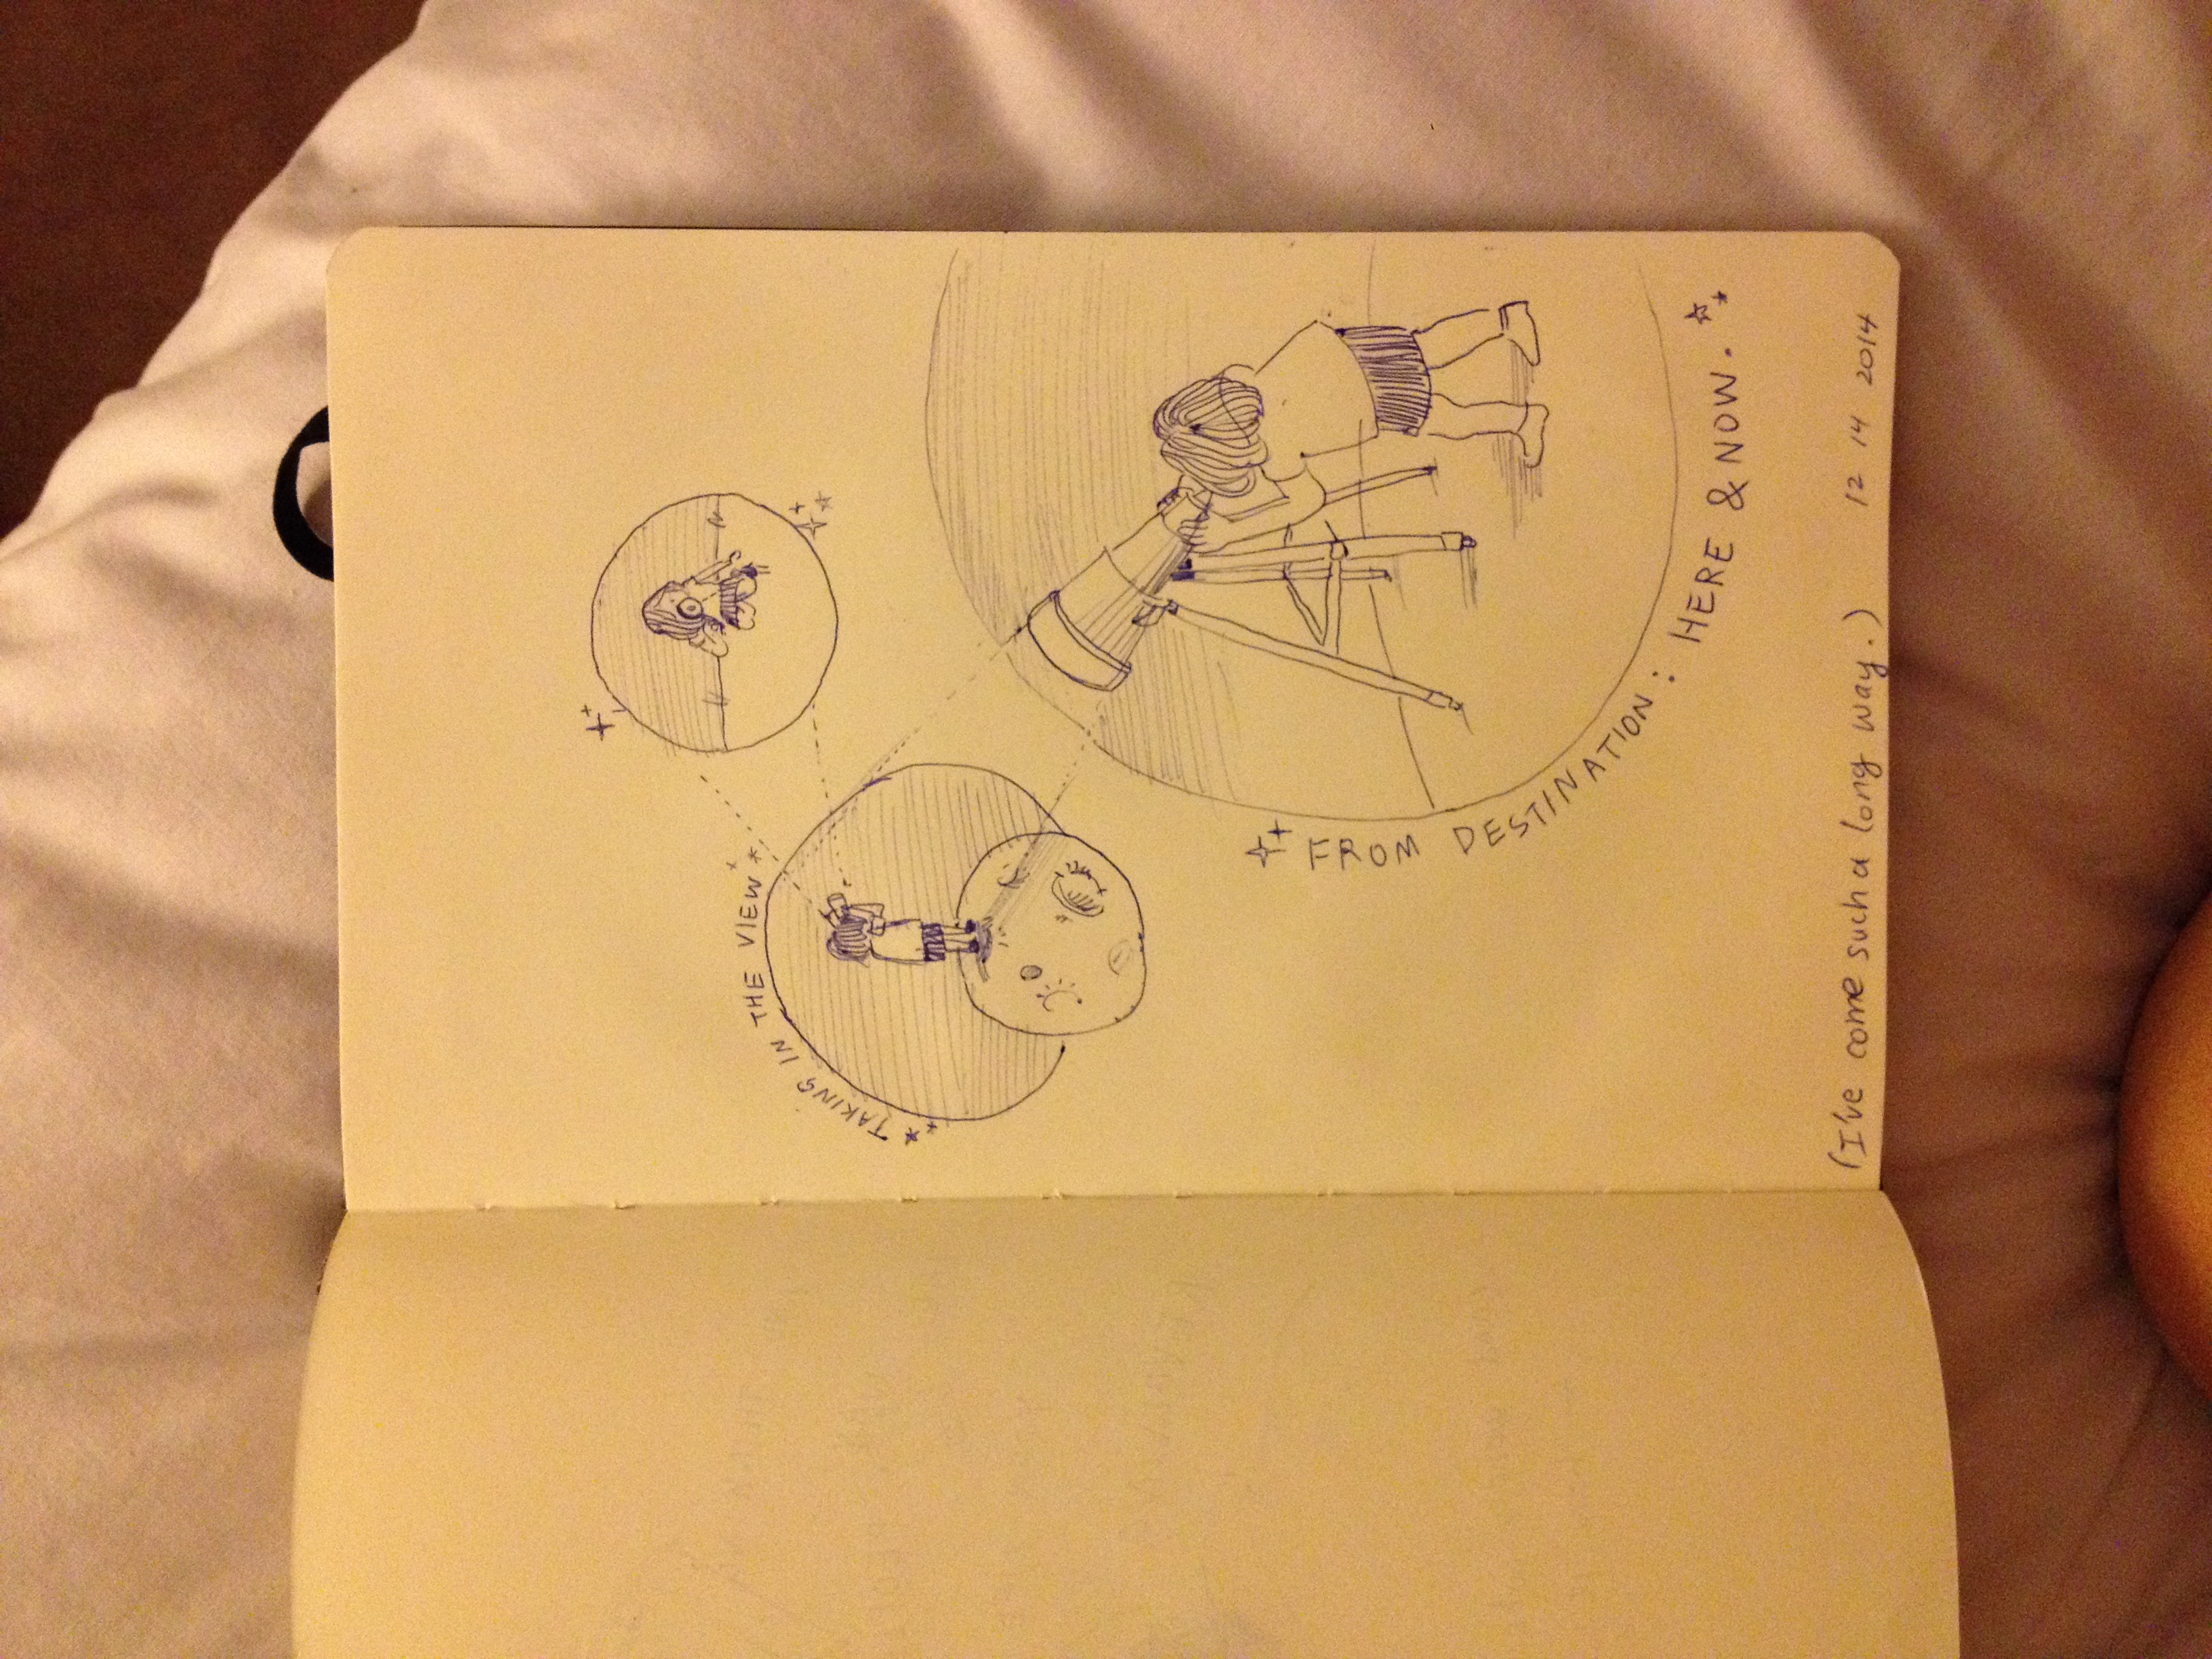 TAKING IN THE VIEW
FROM DESTINATION: HERE & NOW.
(I've come such a long way.) 12 14 2014